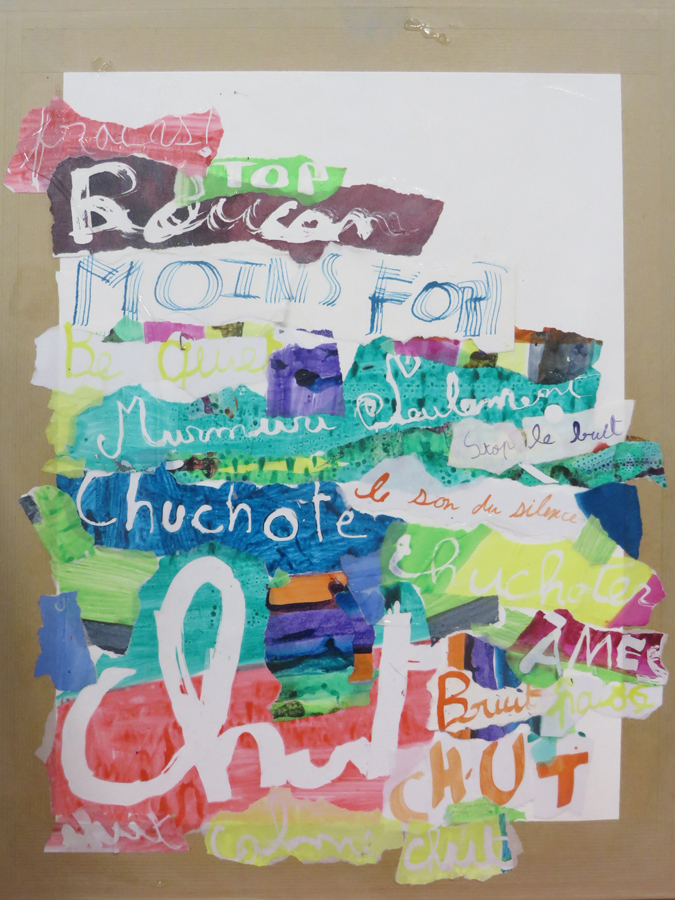 fracas!
STOP
MOINS FORT
Be Quiet
Murmure
Seulement
Stop le bruit
Chuchote
le son du silence
Chuchoter
ÂME
Chut
Bruit
CHUT
nuit
calme
chut